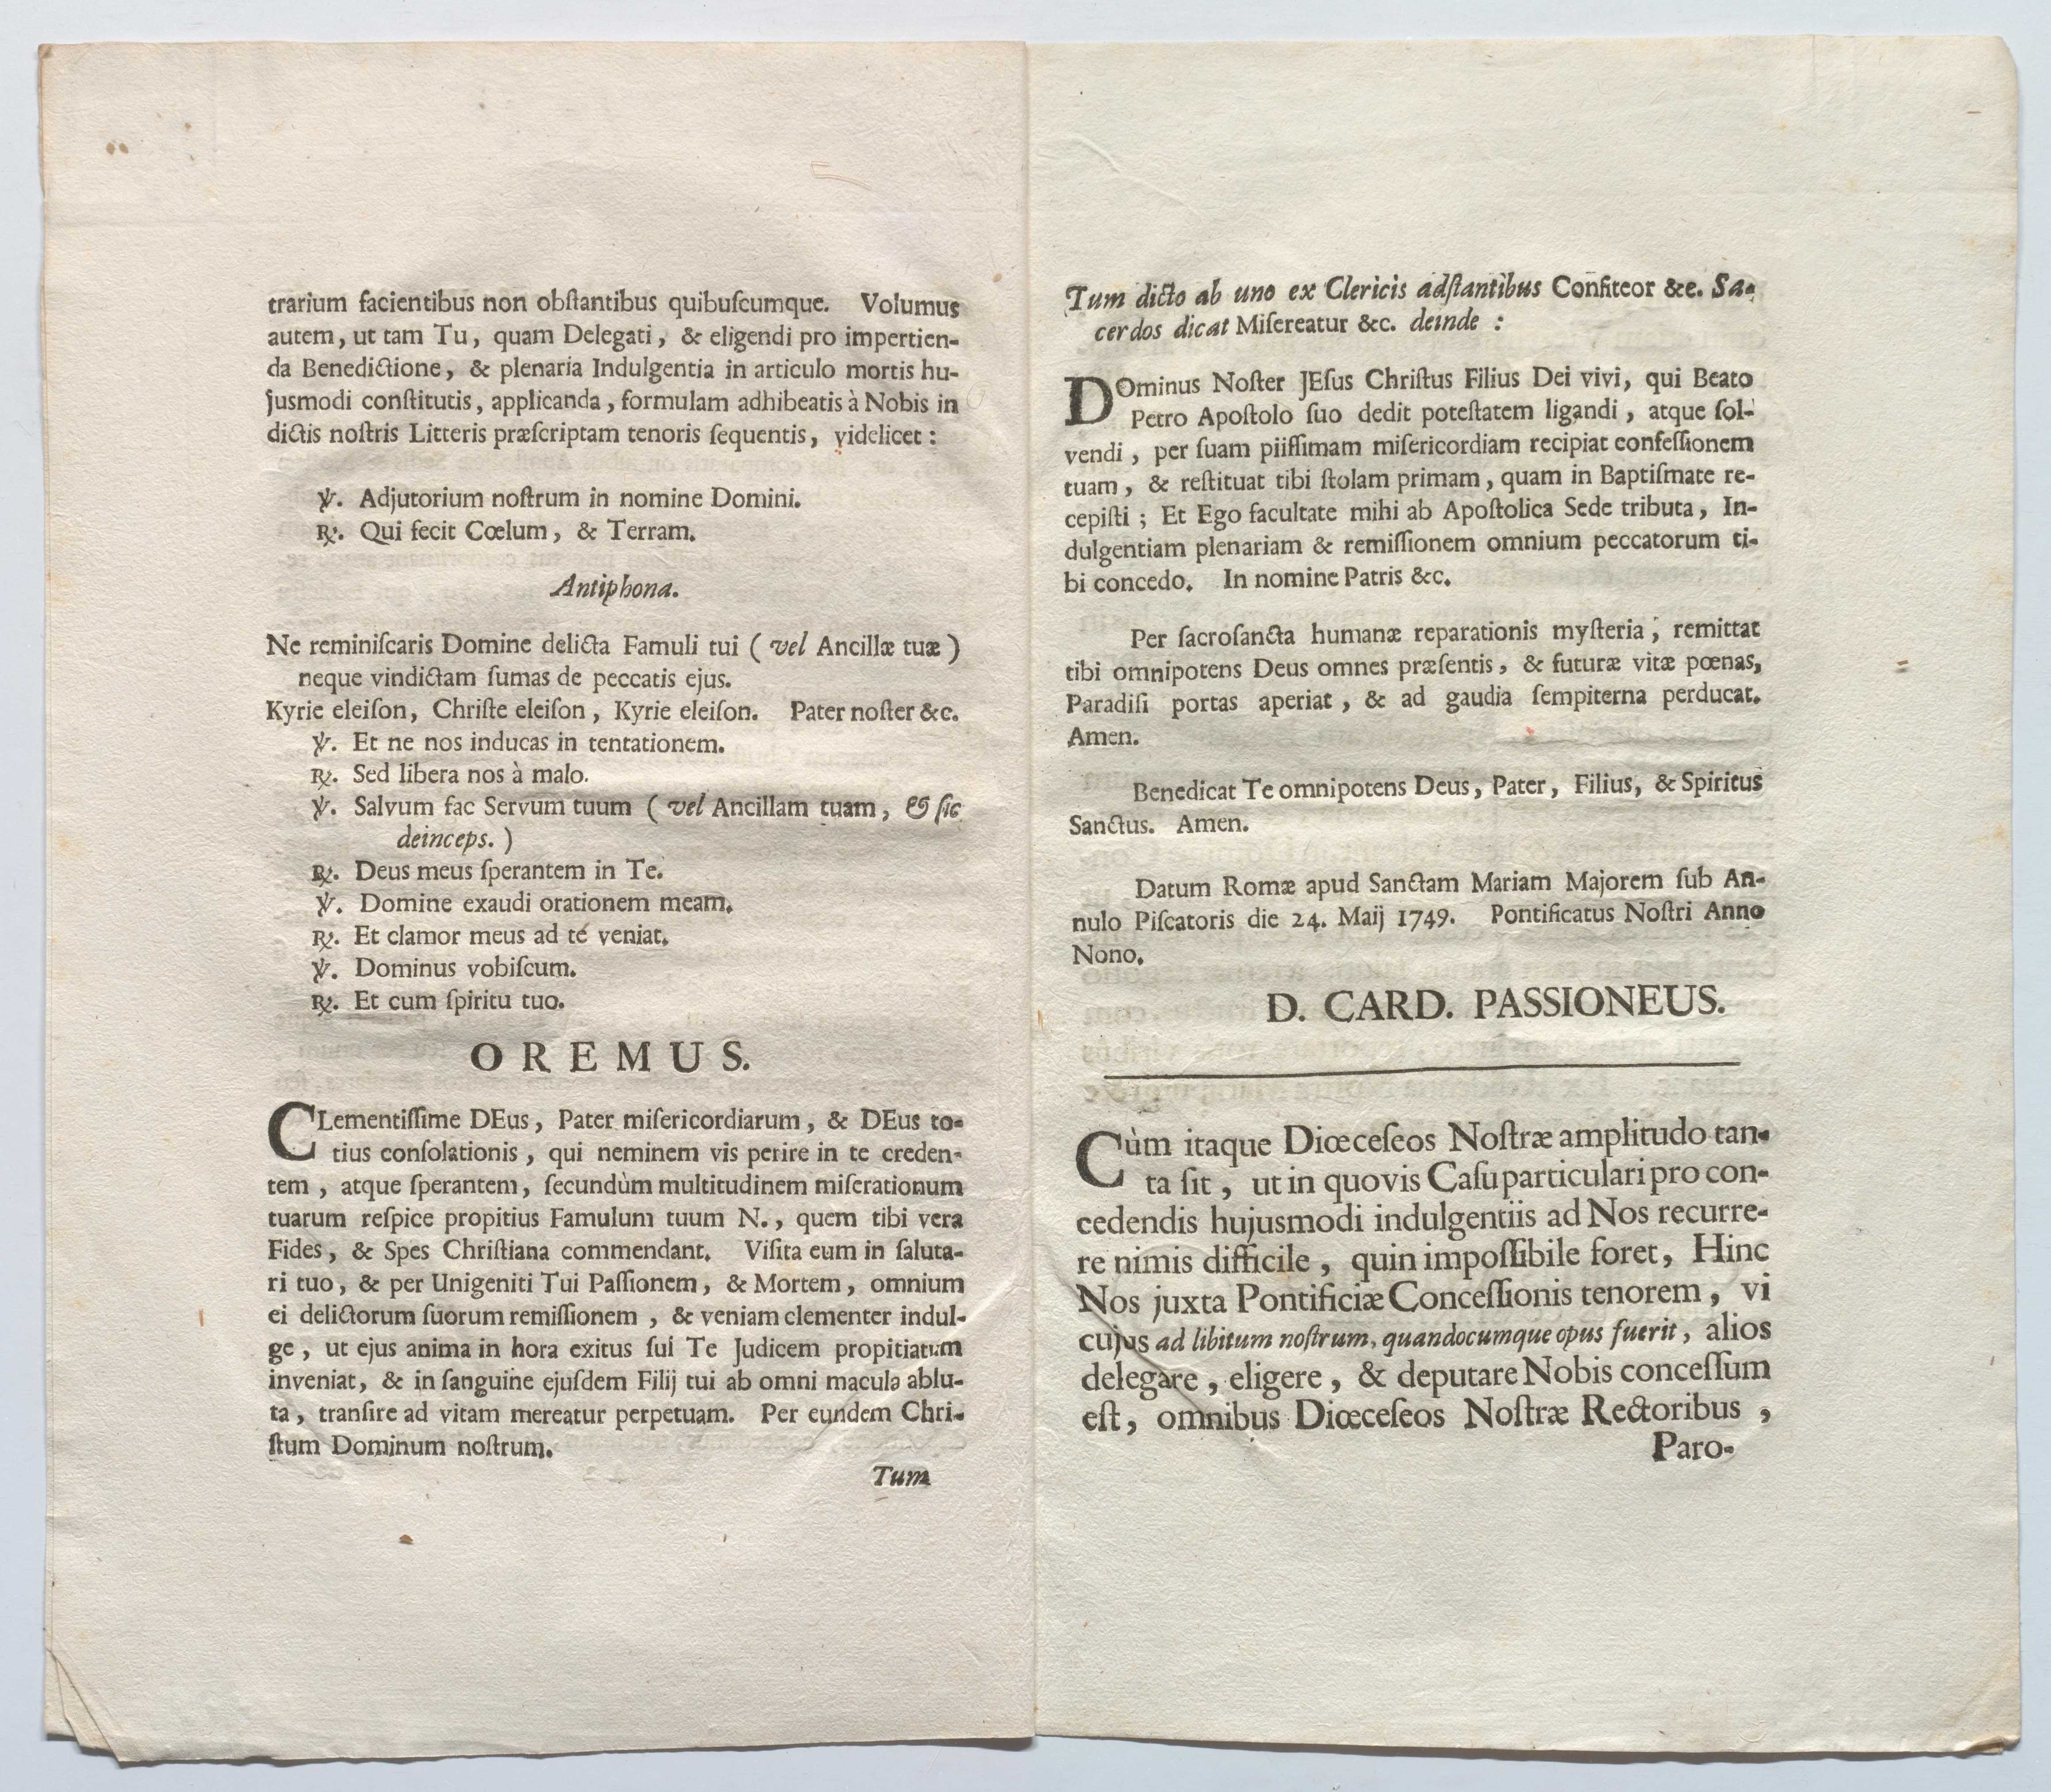 trarium facientibus non obſtantibus quibuſcumque. Volumus
autem, ut tam Tu, quam Delegati, & eligendi pro impertien-
da Benedictione, & plenaria Indulgentia in articulo mortis hu-
jusmodi conſtitutis, applicanda, formulam adhibeatis à Nobis in
dictis noſtris Litteris præſcriptam tenoris ſequentis, videlicet:
℣. Adjutorium noſtrum in nomine Domini.
℟. Qui fecit Cœlum, & Terram.
Antiphona.
Ne reminiſcaris Domine delicta Famuli tui (vel Ancillæ tuæ)
neque vindictam ſumas de peccatis ejus.
Kyrie eleiſon, Chriſte eleiſon, Kyrie eleiſon. Pater noſter &c.
℣. Et ne nos inducas in tentationem.
℟. Sed libera nos à malo.
℣. Salvum fac Servum tuum (vel Ancillam tuam, & ſic
deinceps.)
℟. Deus meus ſperantem in Te.
℣. Domine exaudi orationem meam.
℟. Et clamor meus ad te veniat.
℣. Dominus vobiſcum.
℟. Et cum ſpiritu tuo.
OREMUS.
CLementiſſime DEus, Pater miſericordiarum, & DEus to-
tius conſolationis, qui neminem vis perire in te creden-
tem, atque ſperantem, ſecundùm multitudinem miſerationum
tuarum reſpice propitius Famulum tuum N., quem tibi vera
Fides, & Spes Chriſtiana commendant. Viſita eum in ſaluta-
ri tuo, & per Unigeniti Tui Paſſionem, & Mortem, omnium
ei delictorum ſuorum remiſſionem, & veniam clementer indul-
ge, ut ejus anima in hora exitus ſui Te Judicem propitiatum
inveniat, & in ſanguine ejuſdem Filij tui ab omni macula ablu-
ta, tranſire ad vitam mereatur perpetuam. Per eundem Chri-
ſtum Dominum noſtrum.
Tum
Tum dicto ab uno ex Clericis adſtantibus Confiteor &c. Sa-
cerdos dicat Miſereatur &c. deinde:
DOminus Noſter JEſus Chriſtus Filius Dei vivi, qui Beato
Petro Apoſtolo ſuo dedit poteſtatem ligandi, atque ſol-
vendi, per ſuam piiſſimam miſericordiam recipiat confeſſionem
tuam, & reſtituat tibi ſtolam primam, quam in Baptiſmate re-
cepiſti; Et Ego facultate mihi ab Apoſtolica Sede tributa, In-
dulgentiam plenariam & remiſſionem omnium peccatorum ti-
bi concedo. In nomine Patris &c.
Per ſacroſancta humanæ reparationis myſteria, remittat
tibi omnipotens Deus omnes præſentis, & futuræ vitæ pœnas,
Paradiſi portas aperiat, & ad gaudia ſempiterna perducat.
Amen.
Benedicat Te omnipotens Deus, Pater, Filius, & Spiritus
Sanctus. Amen.
Datum Romæ apud Sanctam Mariam Majorem ſub An-
nulo Piſcatoris die 24. Maij 1749. Pontificatus Noſtri Anno
Nono.
D. CARD. PASSIONEUS.
Cùm itaque Diœceſeos Noſtræ amplitudo tan-
ta ſit, ut in quovis Caſu particulari pro con-
cedendis hujusmodi indulgentiis ad Nos recurre-
re nimis difficile, quin impoſſibile foret, Hinc
Nos juxta Pontificiæ Conceſſionis tenorem, vi
cujus ad libitum noſtrum, quandocumque opus fuerit, alios
delegare, eligere, & deputare Nobis conceſſum
eſt, omnibus Diœceſeos Noſtræ Rectoribus,
Paro-